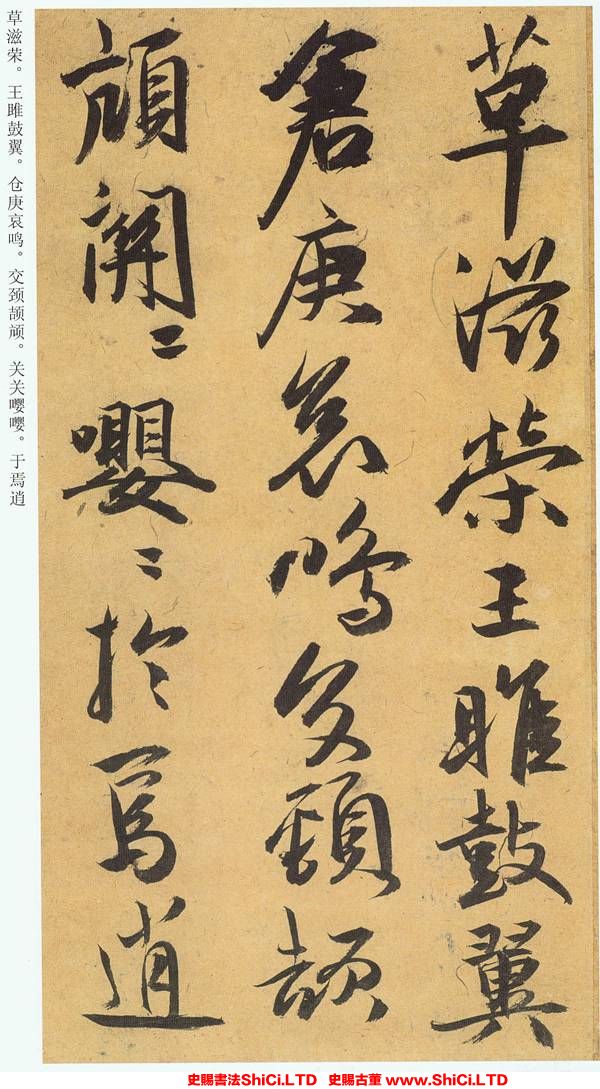 草滋荣。王雎鼓翼。仓庚哀鸣。交颈颉颃。关关嘤嘤。于焉逍
草滋榮王雎鼓翼
倉庚哀鳴交頸頡
頏關〻嚶〻於焉逍
史賜書法ShiCi.LTD 史賜古董 www.ShiCi.LTD